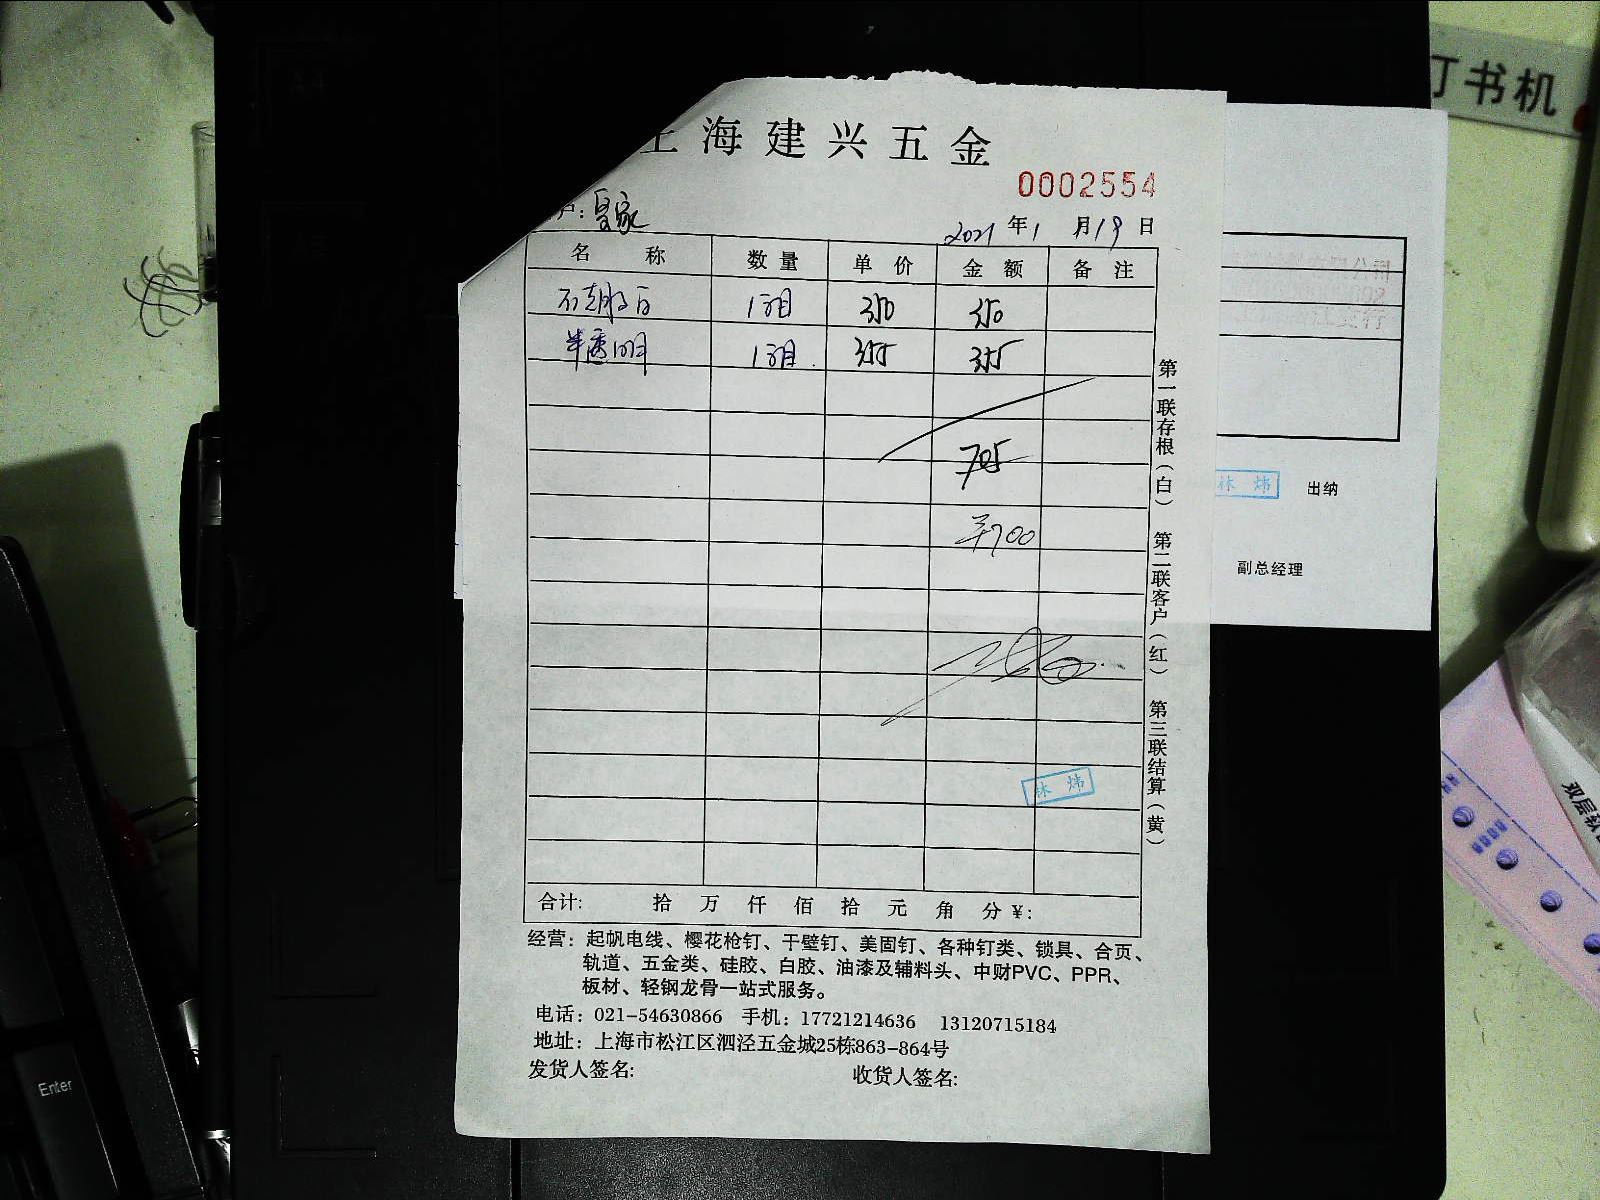 上海建兴五金
0002554
户：皇家
2021年1月19日
名称 数量 单价 金额 备注
1箱 350 350
半透明 1箱 355 355
705
¥700
林炜
合计: 拾 万 仟 佰 拾 元 角 分 ¥:
经营：起帆电线、樱花枪钉、干壁钉、美固钉、各种钉类、锁具、合页、
轨道、五金类、硅胶、白胶、油漆及辅料头、中财PVC、PPR、
板材、轻钢龙骨一站式服务。
电话：021-54630866 手机：17721214636 13120715184
地址：上海市松江区泗泾五金城25栋863-864号
发货人签名: 收货人签名:
第一联存根(白) 第二联客户(红) 第三联结算(黄)
林炜 出纳
副总经理
订书机
Enter
双层软